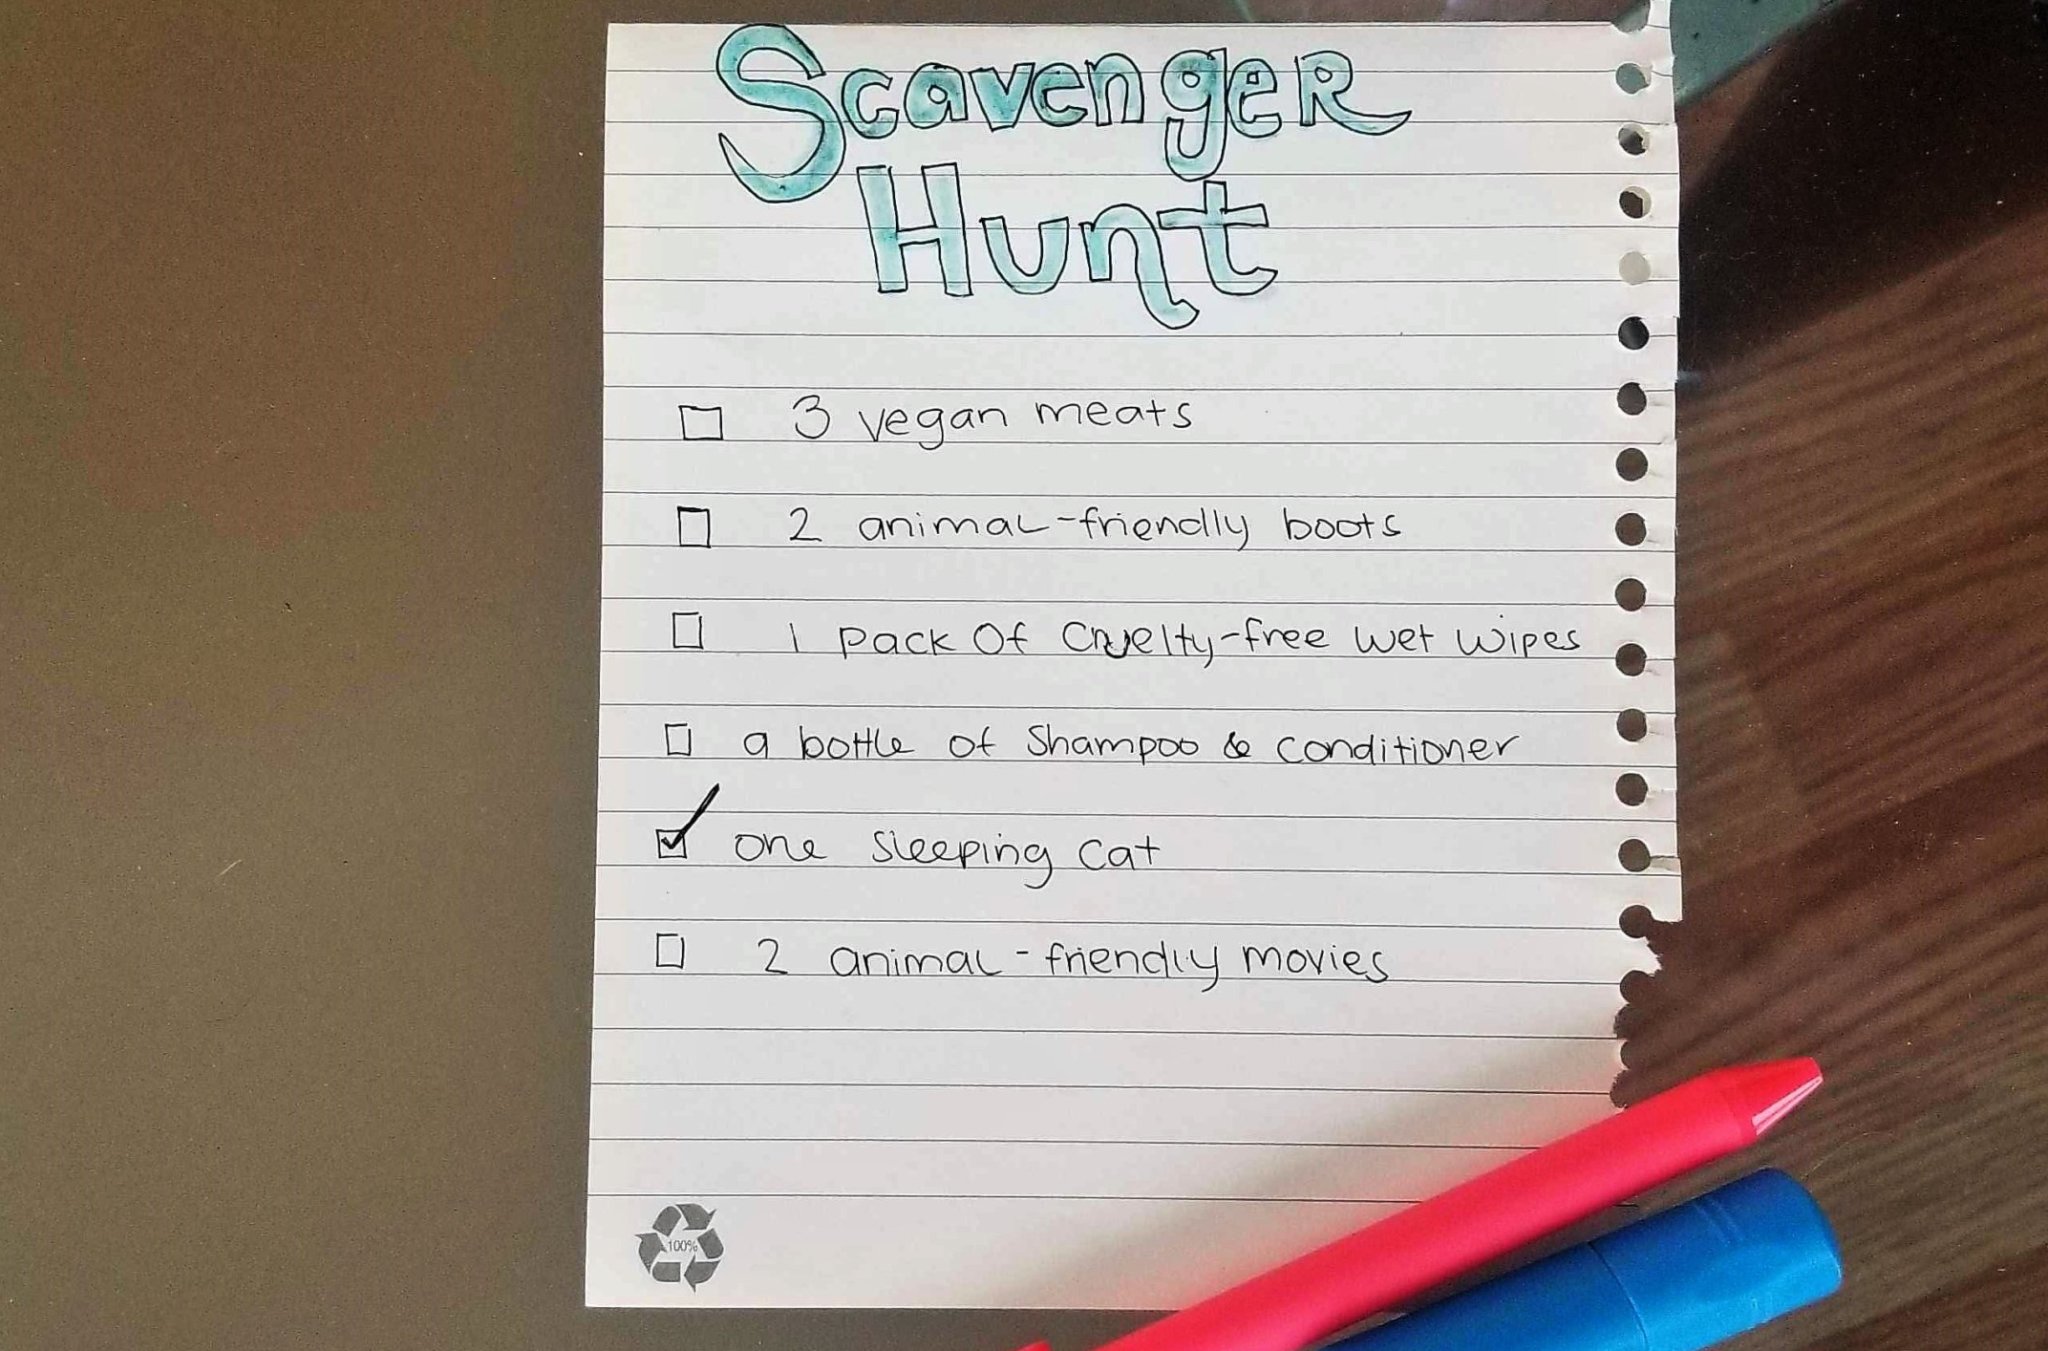 Scavenger
Hunt
3 vegan meats
2 animal-friendly boots
1 pack of cruelty-free wet wipes
a bottle of shampoo & conditioner
one sleeping cat
2 animal-friendly movies
100%